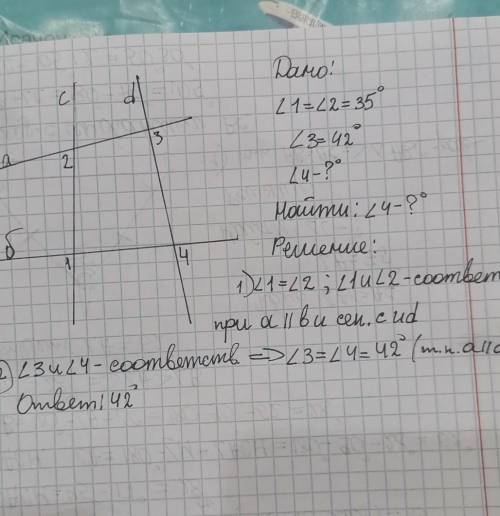 c
d
a
2
3
б
1
4
Дано:
∠1=∠2=35°
∠3=42°
∠4-?°
Найти: ∠4-?°
Решение:
1) ∠1=∠2 ; ∠1 и ∠2 - соответ
при a || в и сек. c и d
2) ∠3 и ∠4 - соответств => ∠3=∠4=42° (т.к. a ||
Ответ: 42°